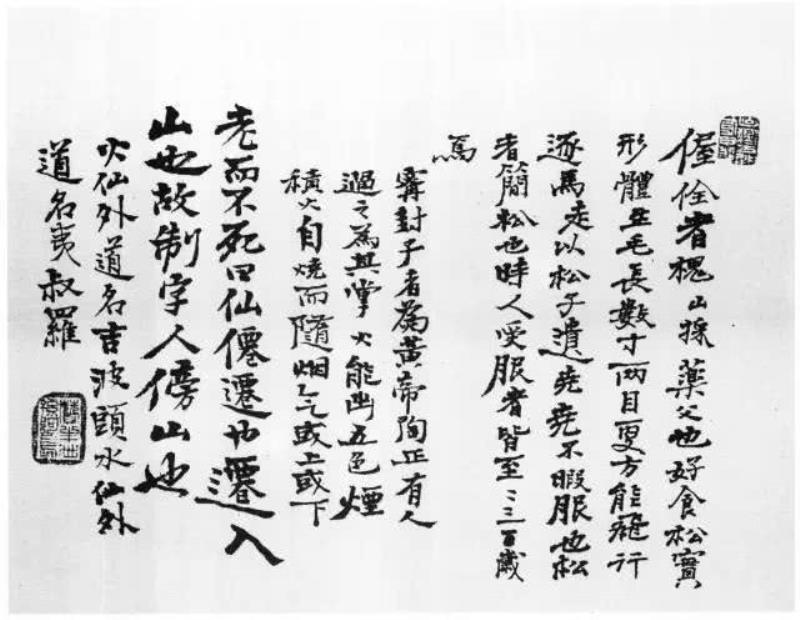 偓佺者槐山採藥父也好食松實
形體生毛長數寸兩目更方能飛行
逐馬走以松子遺堯堯不暇服也松
者簡松也時人受服者皆至二三百歲
焉
寗封子者為黃帝陶正有人
過之為其掌火能出五色煙
積火自燒而隨烟气或上或下
老而不死曰仙僊遷也遷入
山也故制字人傍山也
火仙外道名吉波頭水仙外
道名夷叔羅